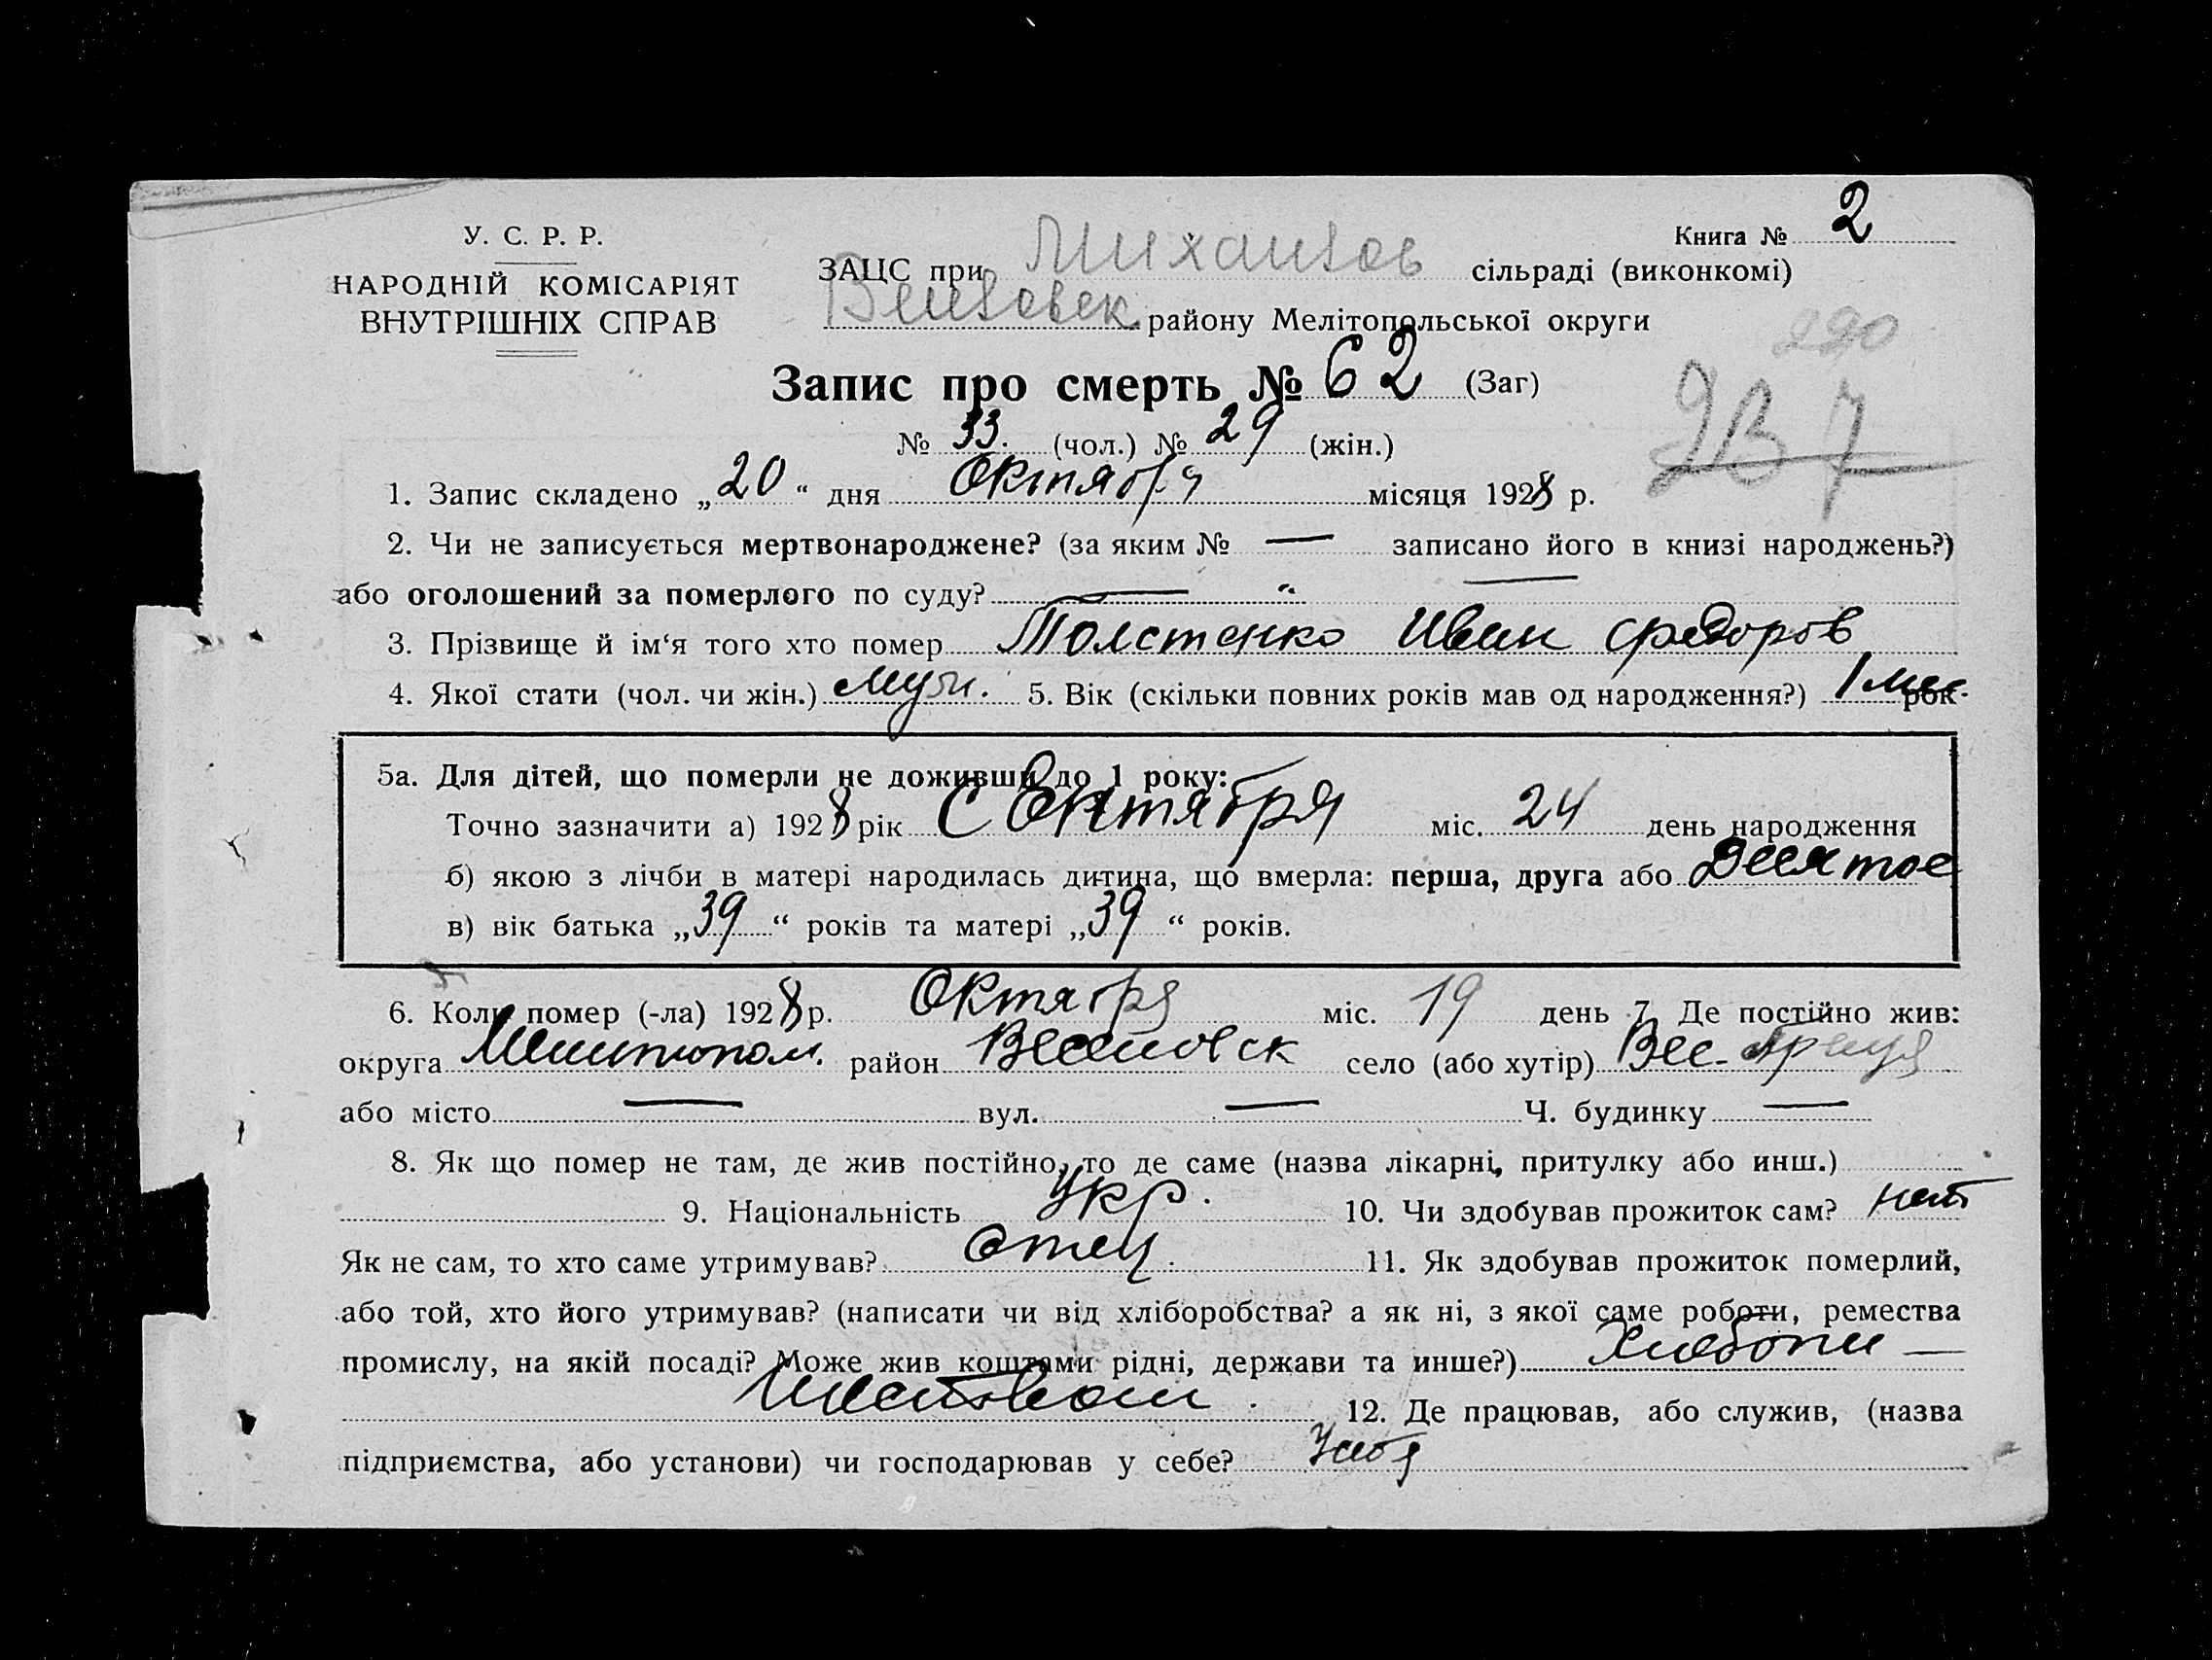 У. С. Р. Р.
НАРОДНІЙ КОМІСАРІЯТ
ВНУТРІШНІХ СПРАВ
Книга № 2
ЗАЦС при Михайлов сільраді (виконкомі)
району Мелітопольської округи
220
Запис про смерть № 62 (Заг)
№ 33. (чол.) № 29 (жін.)
1. Запис складено „20“ дня Октября місяця 1928 р.
2. Чи не записується мертвонароджене? (за яким № — записано його в книзі народжень?)
або оголошений за померлого по суду? — “ —
3. Прізвище й ім‘я того хто помер Толстенко Иван Федоров
4. Якої стати (чол. чи жін.) муж. 5. Вік (скільки повних років мав од народження?) 1 мес. рок.
5а. Для дітей, що померли не доживши до 1 року:
Точно зазначити а) 1928 рік Сентября міс. 24 день народження
б) якою з лічби в матері народилась дитина, що вмерла: перша, друга або Десятое
в) вік батька „39“ років та матері „39“ років.
6. Коли помер (-ла) 1928 р. Октября міс. 19 день 7. Де постійно жив:
округа Мелитопол. район Веселовск село (або хутір) Вес.
або місто — вул. — Ч. будинку —
8. Як що помер не там, де жив постійно, то де саме (назва лікарні, притулку або инш.)
9. Національність Укр. 10. Чи здобував прожиток сам? нет
Як не сам, то хто саме утримував? Отец. 11. Як здобував прожиток померлий,
або той, хто його утримував? (написати чи від хліборобства? а як ні, з якої саме роботи, ремества
промислу, на якій посаді? Може жив коштами рідні, держави та инше?) Хлебопа —
шеством. 12. Де працював, або служив, (назва
підприємства, або установи) чи господарював у себе? У себя